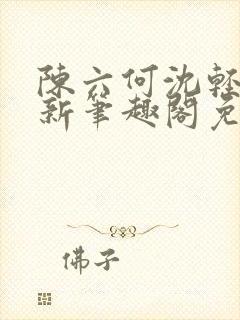 陳六何沈輕
新筆趣閣免
佛子